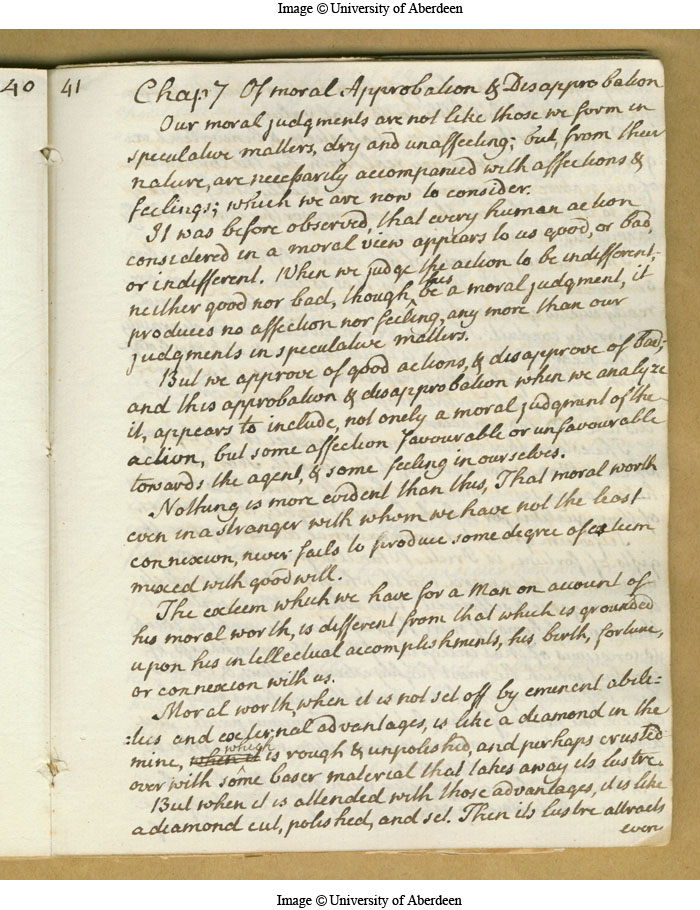 Image © University of Aberdeen
40
41
Chap 7 Of moral Approbation & Disapprobation
Our moral judgments are not like those we form in
speculative matters, dry and unaffecting; but, from their
nature, are necessarily accompanied with affections &
feelings; which we are now to consider.
It was before observed, that every human action
considered in a moral view appears to us good, or bad,
or indifferent. When we judge the action to be indifferent,
neither good nor bad, though this be a moral judgment, it
produces no affection nor feeling, any more than our
judgments in speculative matters.
But we approve of good actions, & disapprove of bad;
and this approbation & disapprobation when we analyze
it, appears to include, not onely a moral judgment of the
action, but some affection favourable or unfavourable
towards the agent, & some feeling in ourselves.
Nothing is more evident than this, That moral worth
even in a stranger with whom we have not the least
connexion, never fails to produce some degree of esteem
mixed with good will.
The esteem which we have for a Man on account of
his moral worth, is different from that which is grounded
upon his intellectual accomplishments, his birth, fortune,
or connexion with us.
Moral worth, when it is not set off by eminent abili=
:ties and external advantages, is like a diamond in the
mine, when it which is rough & unpolished, and perhaps crusted
over with some baser material that takes away its lustre.
But when it is attended with those advantages, it is like
a diamond cut, polished, and set. Then its lustre attracts
even
Image © University of Aberdeen